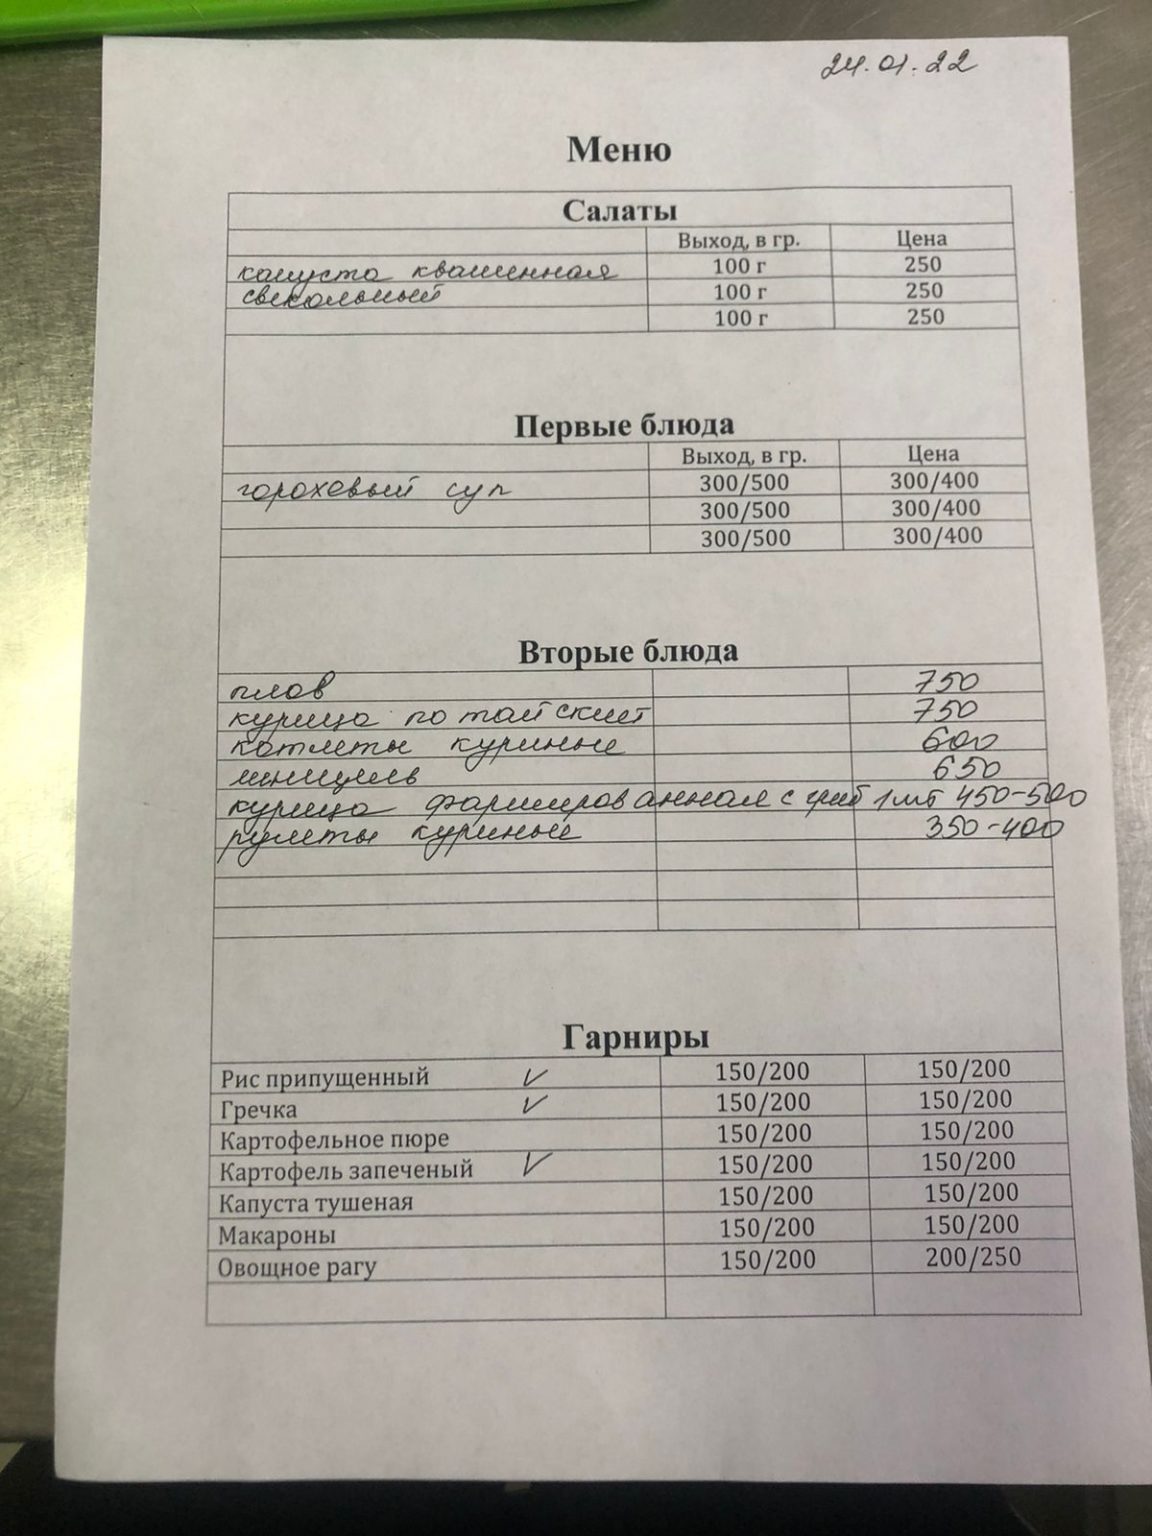 24.01.22
Меню
Салаты
Выход, в гр. Цена
капуста квашенная 100 г 250
свекольный 100 г 250
100 г 250
Первые блюда
Выход, в гр. Цена
гороховый суп 300/500 300/400
300/500 300/400
300/500 300/400
Вторые блюда
плов 750
курица по тайски 750
котлеты куриные 600
шницель 650
курица фаршированная с гриб 1шт 450-500
рулеты куриные 350-400
Гарниры
Рис припущенный ✓ 150/200 150/200
Гречка ✓ 150/200 150/200
Картофельное пюре 150/200 150/200
Картофель запеченый ✓ 150/200 150/200
Капуста тушеная 150/200 150/200
Макароны 150/200 150/200
Овощное рагу 150/200 200/250